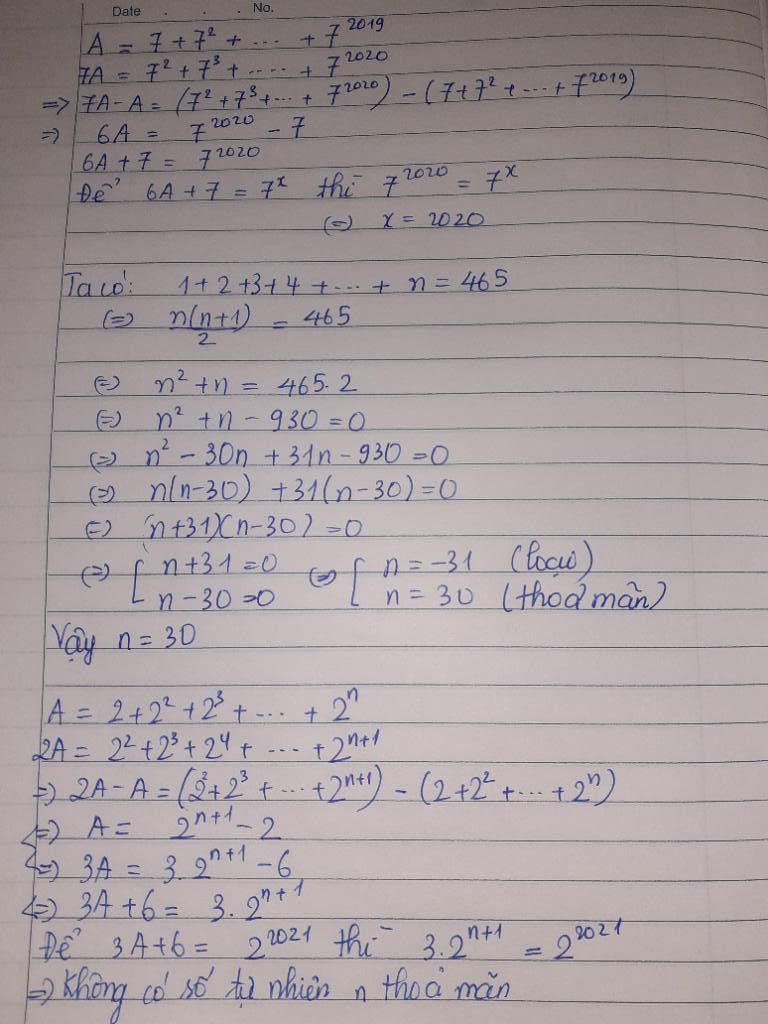 Date . . . No.
A = 7 + 7² + ... + 7²⁰¹⁹
7A = 7² + 7³ + .... + 7²⁰²⁰
=> 7A - A = (7² + 7³ + ... + 7²⁰²⁰) - (7 + 7² + ... + 7²⁰¹⁹)
=> 6A = 7²⁰²⁰ - 7
6A + 7 = 7²⁰²⁰
Để 6A + 7 = 7ˣ thì 7²⁰²⁰ = 7ˣ
(=) x = 2020
Ta có: 1 + 2 + 3 + 4 + ... + n = 465
(=) n(n+1)/2 = 465
(=) n² + n = 465.2
(=) n² + n - 930 = 0
(=) n² - 30n + 31n - 930 = 0
(=) n(n-30) + 31(n-30) = 0
(=) (n+31)(n-30) = 0
(=) [ n + 31 = 0 (=) [ n = -31 (loại)
n - 30 = 0 n = 30 (thoả mãn)
Vậy n = 30
A = 2 + 2² + 2³ + ... + 2ⁿ
2A = 2² + 2³ + 2⁴ + ... + 2ⁿ⁺¹
=> 2A - A = (2² + 2³ + ... + 2ⁿ⁺¹) - (2 + 2² + ... + 2ⁿ)
<=> A = 2ⁿ⁺¹ - 2
<=> 3A = 3.2ⁿ⁺¹ - 6
<=> 3A + 6 = 3.2ⁿ⁺¹
Để 3A + 6 = 2²⁰²¹ thì 3.2ⁿ⁺¹ = 2²⁰²¹
=> Không có số tự nhiên n thoả mãn